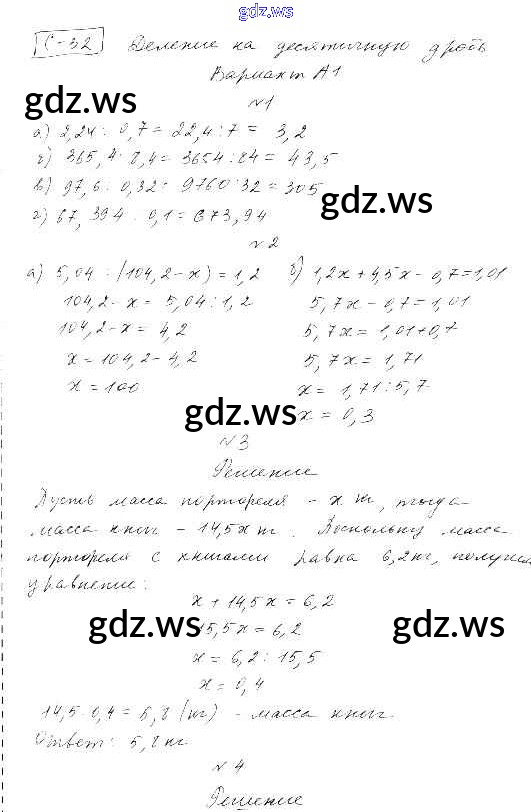 gdz.ws
С-32 Деление на десятичную дробь
Вариант А1
gdz.ws
№1
а) 2,24 : 0,7 = 22,4 : 7 = 3,2
б) 365,4 : 8,4 = 3654 : 84 = 43,5
в) 97,6 : 0,32 = 9760 : 32 = 305
gdz.ws
г) 67,394 : 0,1 = 673,94
№2
а) 5,04 : (104,2 - x) = 1,2
104,2 - x = 5,04 : 1,2
104,2 - x = 4,2
x = 104,2 - 4,2
x = 100
б) 1,2x + 4,5x - 0,7 = 1,01
5,7x - 0,7 = 1,01
5,7x = 1,01 + 0,7
5,7x = 1,71
x = 1,71 : 5,7
x = 0,3
gdz.ws
№3
Решение
Пусть масса портфеля - x кг, тогда
масса книг - 14,5x кг. Поскольку масса
портфеля с книгами равна 6,2 кг, получим
уравнение:
x + 14,5x = 6,2
gdz.ws
15,5x = 6,2
gdz.ws
x = 6,2 : 15,5
x = 0,4
14,5 · 0,4 = 5,8 (кг) - масса книг.
Ответ: 5,8 кг
№4
Решение